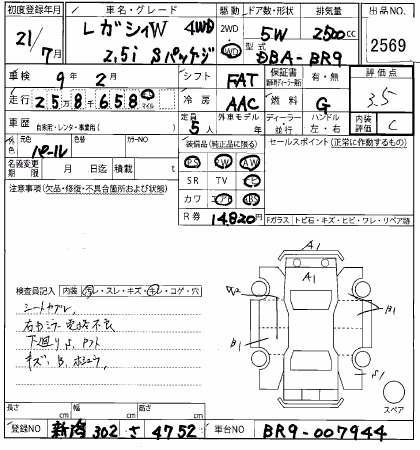 初度登録年月 車名・グレード 駆動 ドア数・形状 排気量 出品NO.
21/7月 レガシィW 4WD 2WD 4WD 5W 2500cc 2569
2,5i Sパッケージ 型式 DBA-BR9
車検 9年2月 シフト FAT 保証書 有・無 評価点 3.5
走行 2万5千658 マイル 冷房 AAC 燃料 G
車歴 自家用・レンタ・事業用( ) 定員 5人 外車モデル 年 ディーラー・並行 ハンドル 左・右 内装評価 C
外色 パール 元色 カラーNO 装備品(純正品に限る) セールスポイント(正常に作動するもの)
PS PW AW
名義変更期限 月 日迄 積載 t SR TV
注意事項(欠品・修復・不具合箇所および状態) カワ エアB ABS
R券 14,820円 Fガラス トビ石・キズ・ヒビ・ワレ・リペア跡
A1
A1
検査員記入 内装 汚レ・スレ・キズ・キレ・コゲ・穴
シートヤブレ,
下廻り S,
キズ, B,
B1
B1
S1
スペア
長さ cm 幅 cm 高さ cm
登録NO 新潟 302 さ 4752 車台NO BR9-007944